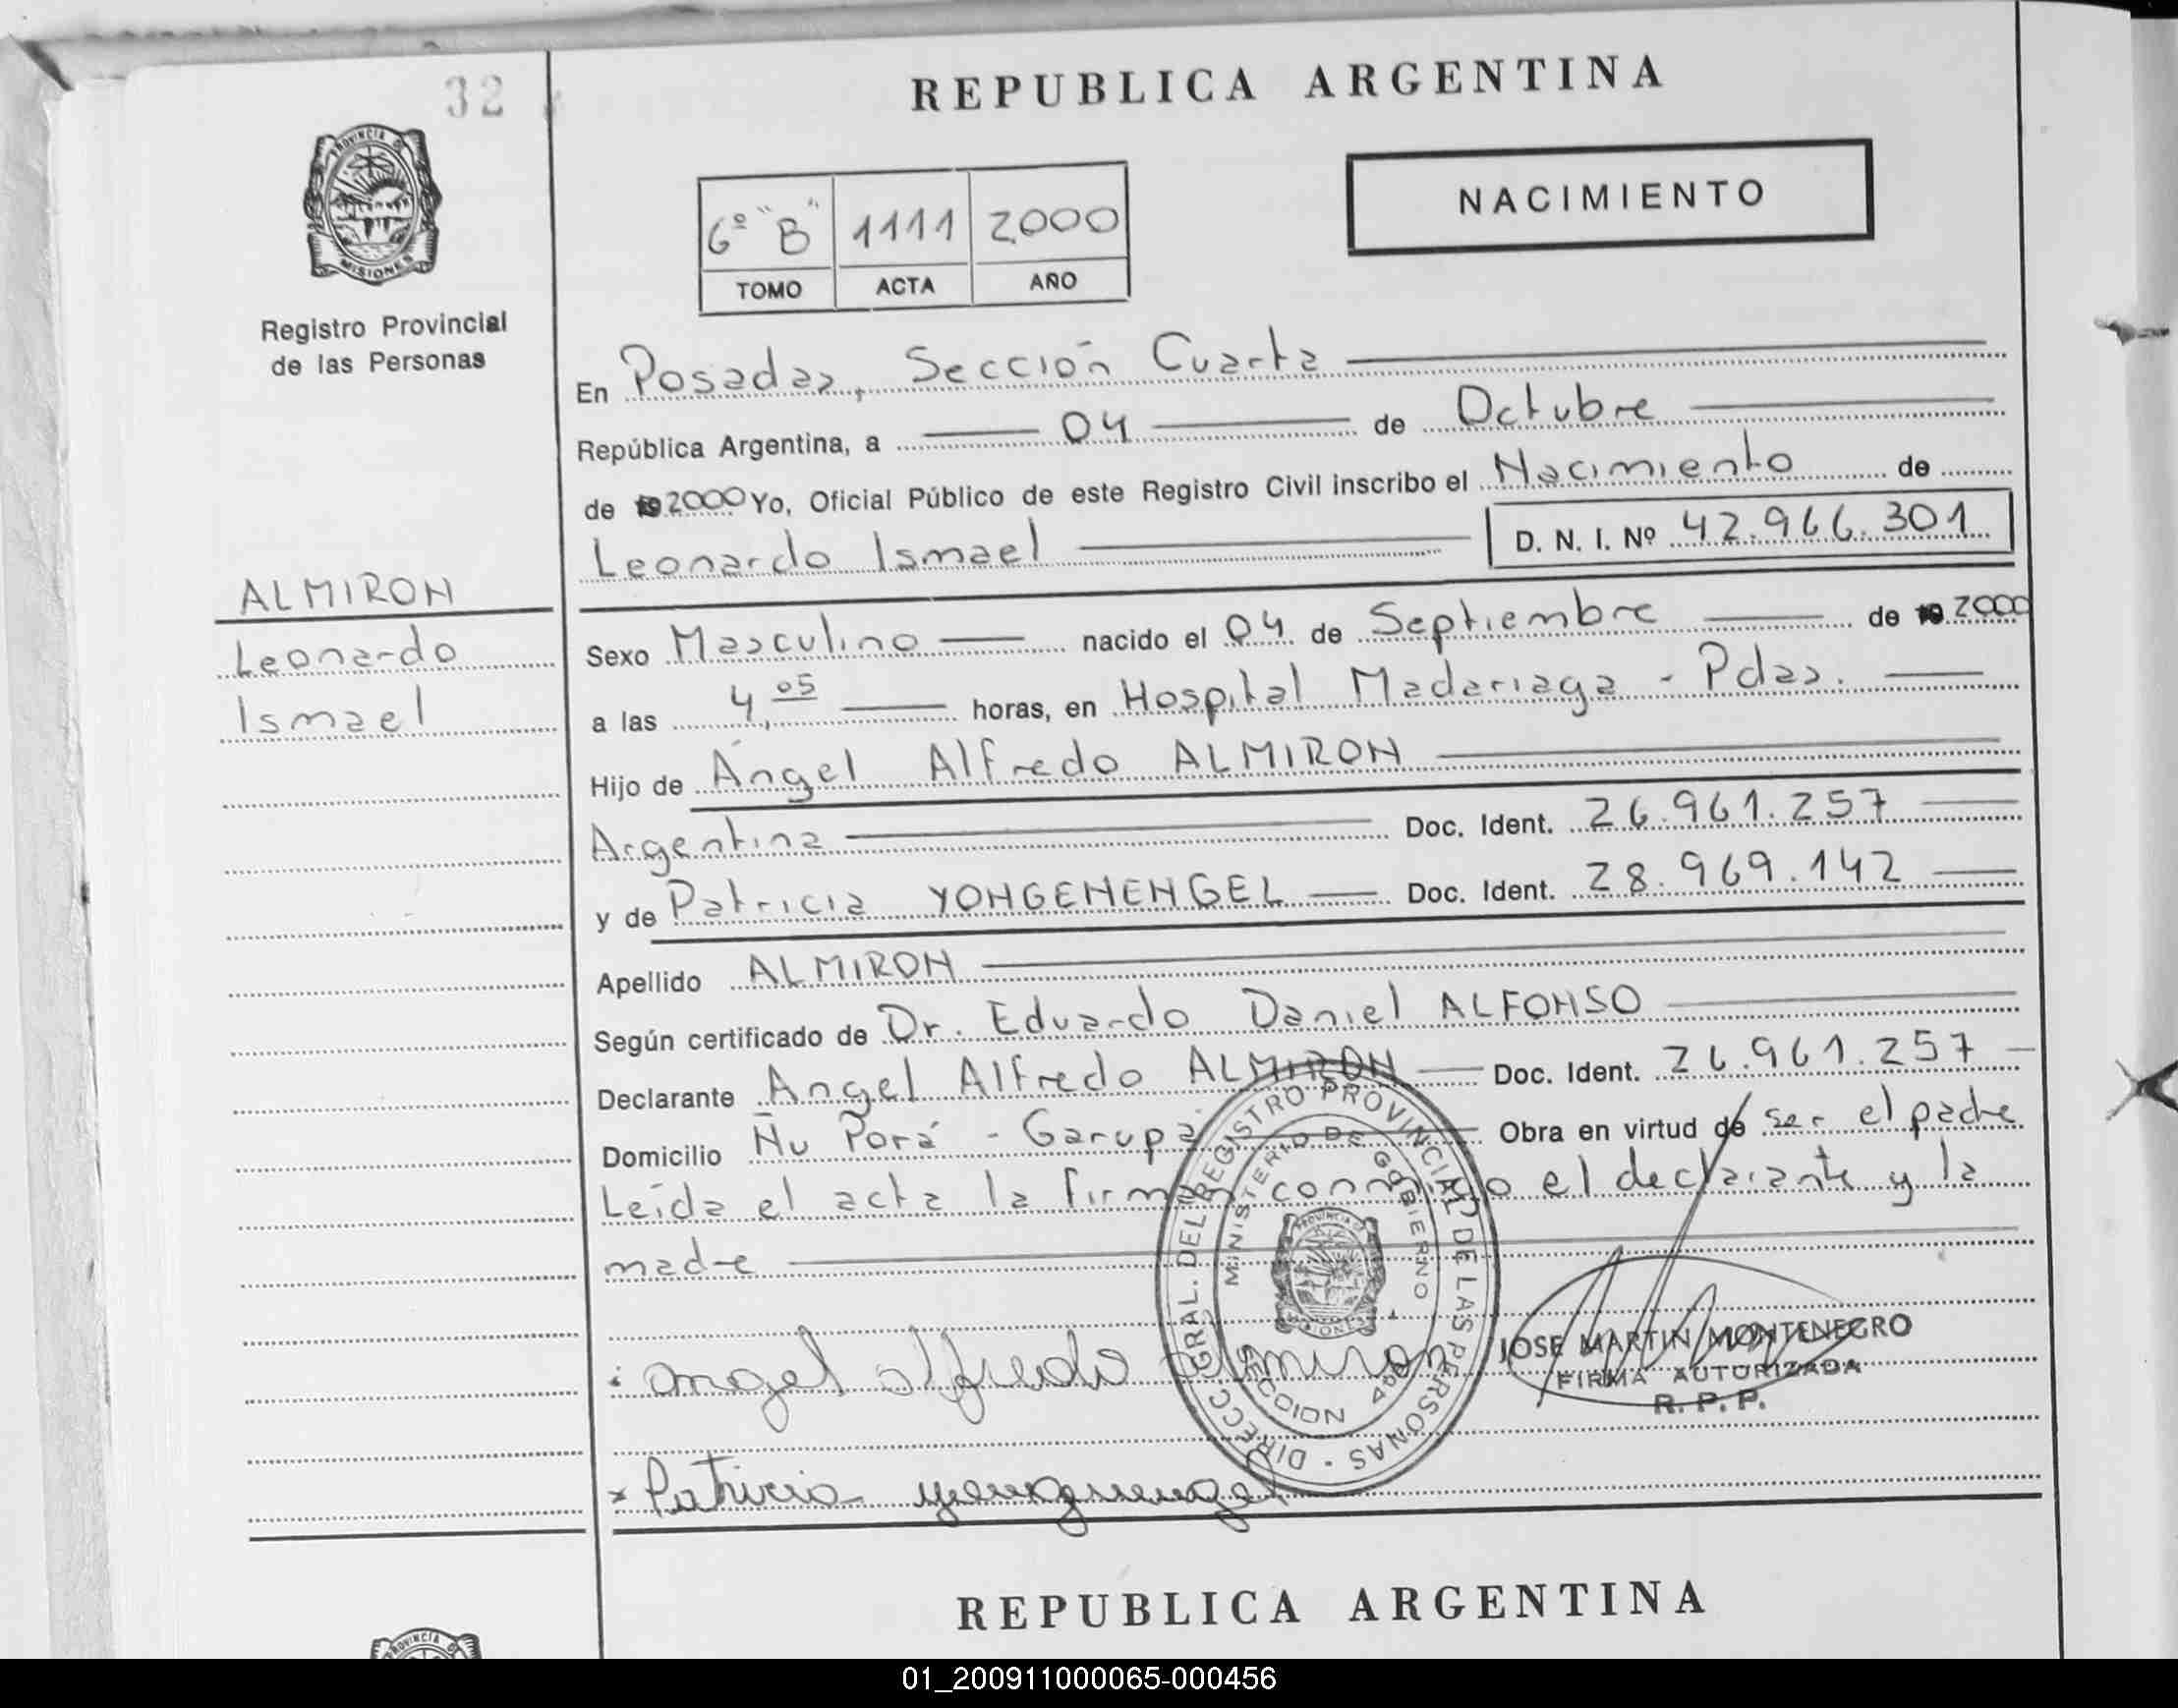 32
REPUBLICA ARGENTINA
PROVINCIA DE
MISIONES
NACIMIENTO
6º "B" 1111 2000
TOMO ACTA AÑO
Registro Provincial
de las Personas
En Posadas, Sección Cuarta
República Argentina, a 04 de Octubre
de 19 2000 Yo, Oficial Público de este Registro Civil inscribo el Nacimiento de
Leonardo Ismael D. N. I. Nº 42.966.301
ALMIRON
Leonardo
Ismael
Sexo Masculino nacido el 04 de Septiembre de 19 2000
a las 4,05 horas, en Hospital Madariaga - Pdas.
Hijo de Angel Alfredo ALMIRON
Argentina Doc. Ident. 26.961.257
y de Patricia YONGENENGEL Doc. Ident. 28.969.142
Apellido ALMIRON
Según certificado de Dr. Eduardo Daniel ALFONSO
Declarante Angel Alfredo ALMIRON Doc. Ident. 26.961.257
Domicilio Ñu Porá - Garupá Obra en virtud de ser el padre
Leída el acta la firman conmigo el declarante y la
madre
DIRECC. GRAL. DEL REGISTRO PROVINCIAL DE LAS PERSONAS
MINISTERIO DE GOBIERNO
PROVINCIA DE
MISIONES
SECCION 4ta
JOSE MARTIN MONTENEGRO
FIRMA AUTORIZADA
R. P. P.
angel alfredo almiron
x Patricia
REPUBLICA ARGENTINA
PROVINCIA DE
01_200911000065-000456